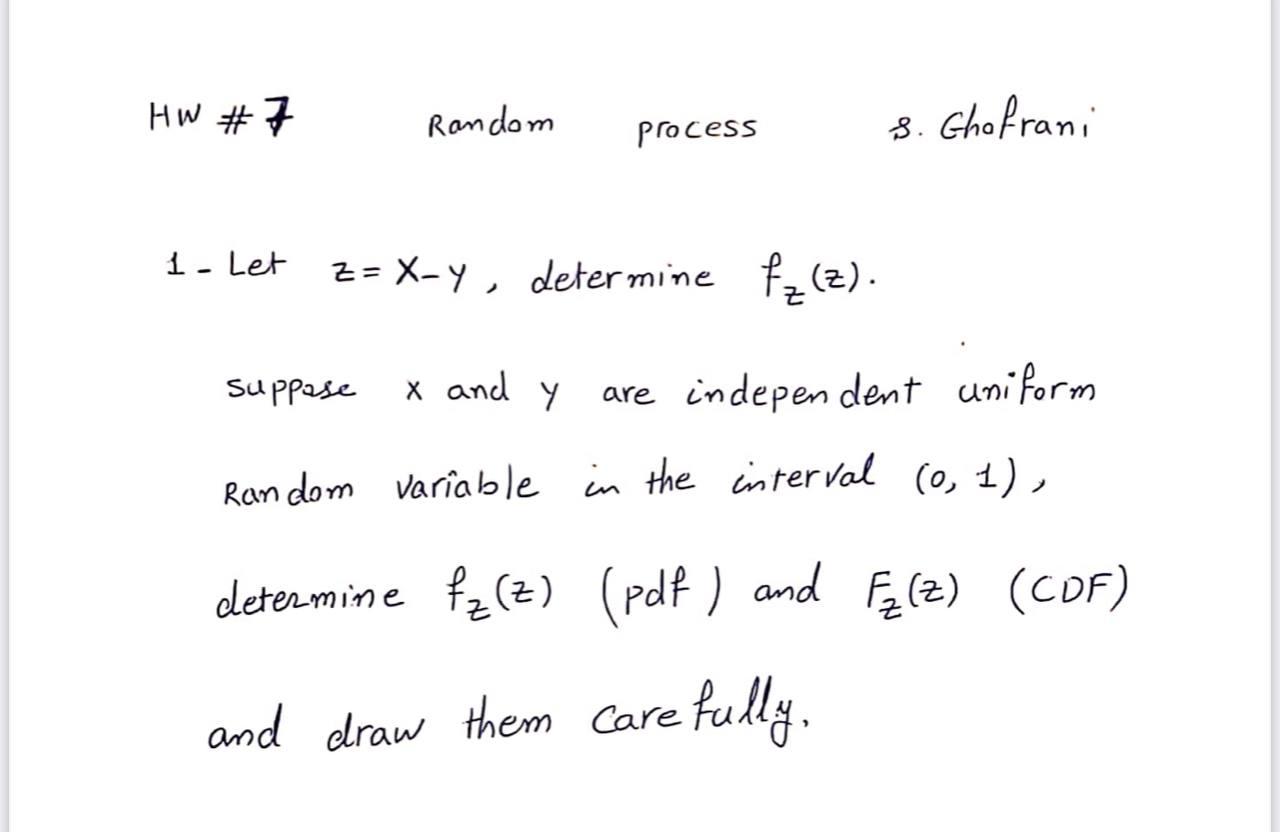 HW # 7 Random process S. Ghofrani
1 - Let z = X-Y, determine f_z(z).
suppose x and y are independent uniform
Random variable in the interval (0, 1),
determine f_z(z) (pdf) and F_z(z) (CDF)
and draw them carefully.